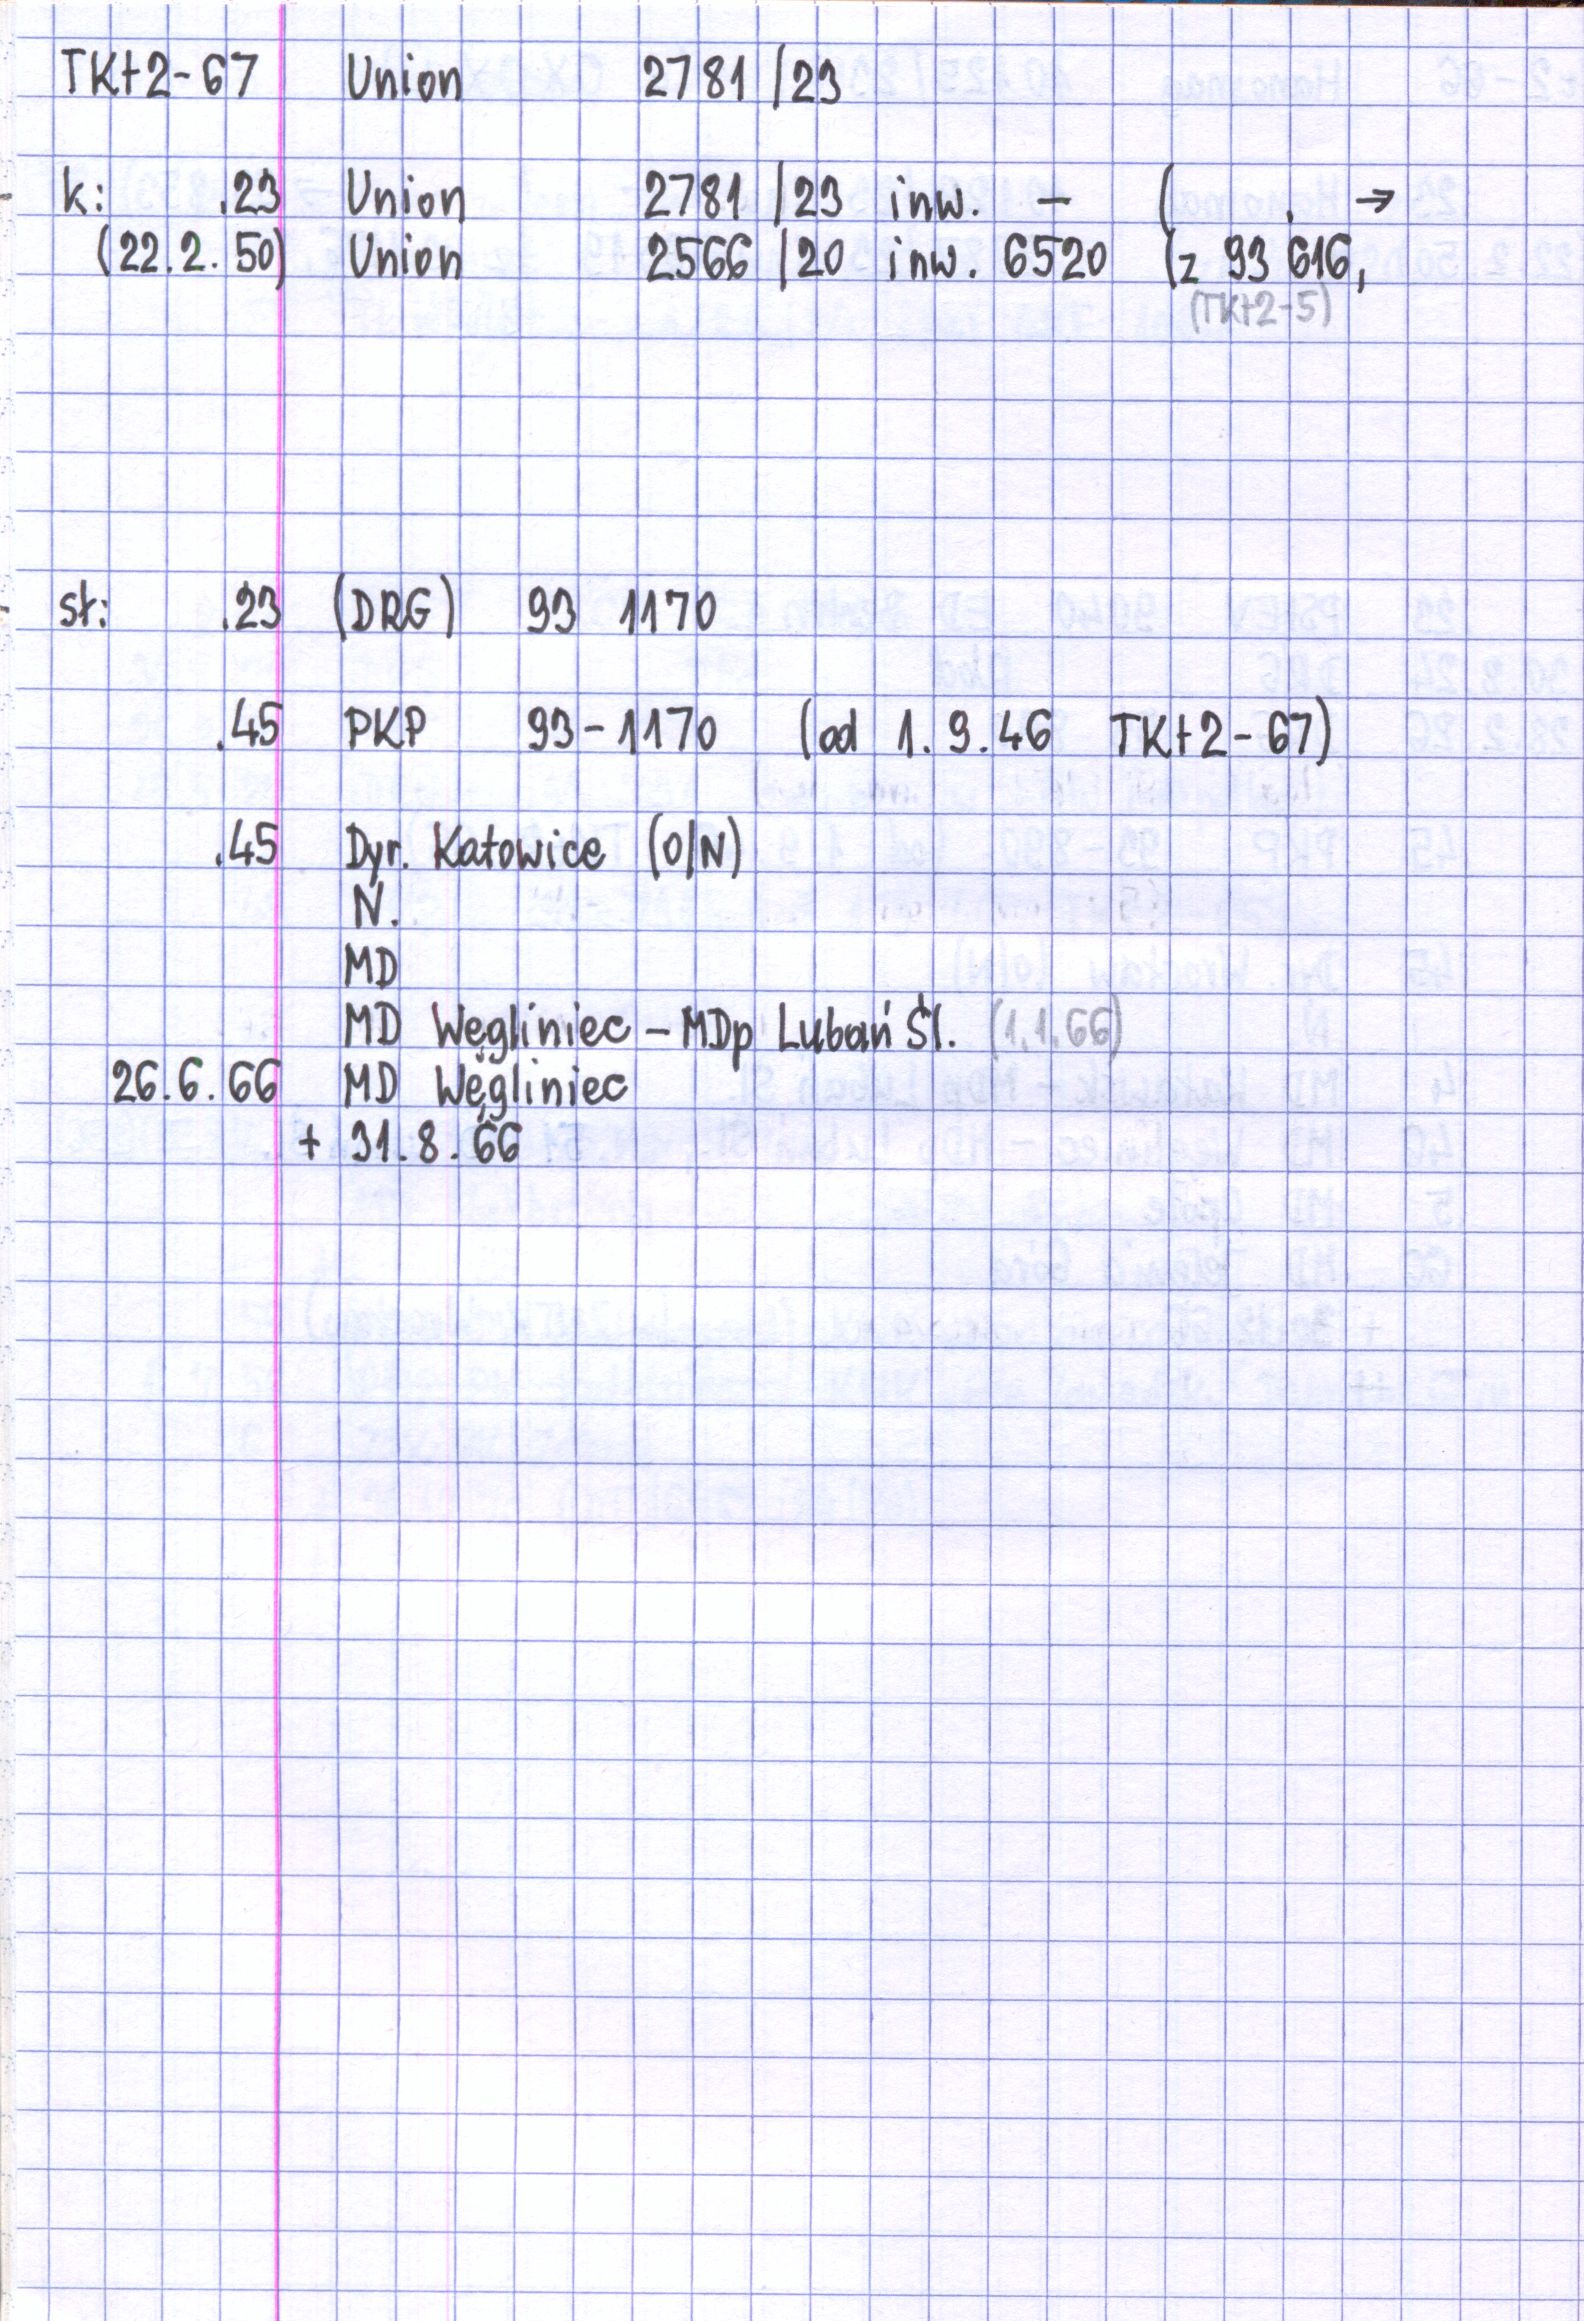 TKt2-67 Union 2781/23
k: .23 Union 2781/23 inw. – ( . →
(22.2.50) Union 2566/20 inw. 6520 (z 93 616,
(TKt2-5)
st: .23 (DRG) 93 1170
.45 PKP 93-1170 (od 1.9.46 TKt2-67)
.45 Dyr. Katowice (O/N)
N.
MD
MD Węgliniec – MDp Lubań Śl. (1.1.66)
26.6.66 MD Węgliniec
+ 31.8.66